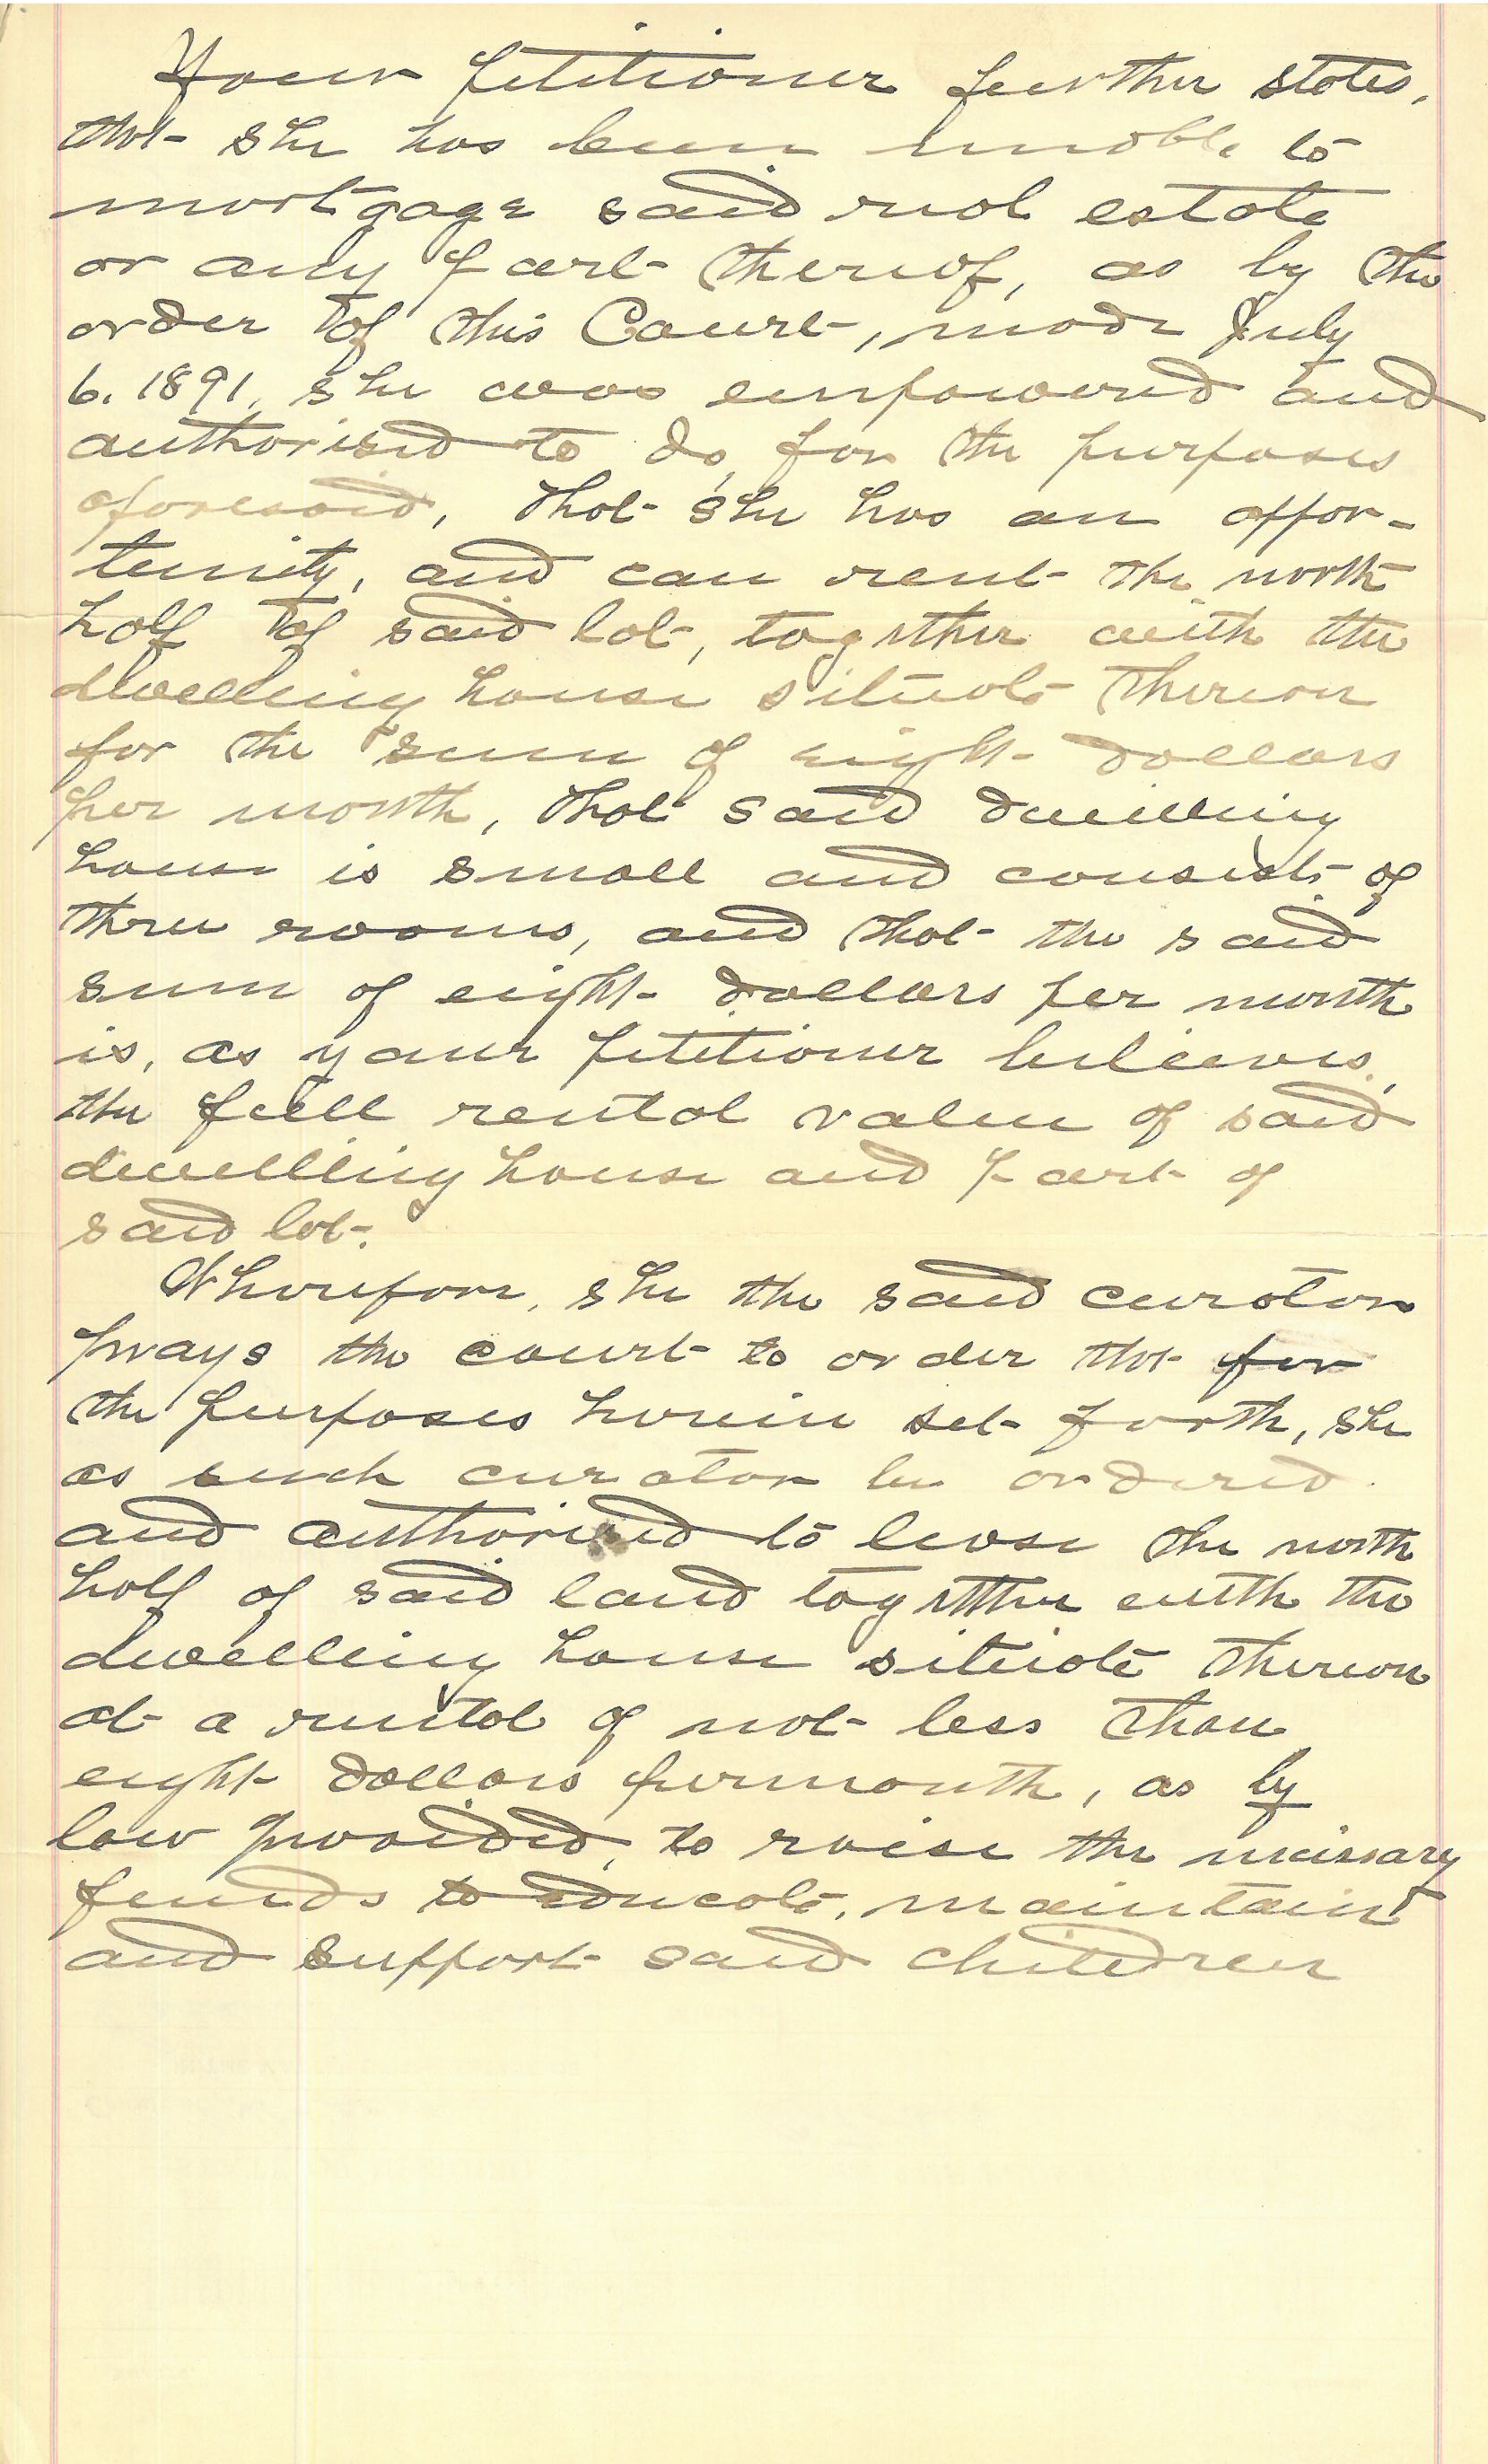 Your petitioner further states,
that she has been unable to
mortgage said real estate
or any part thereof, as by the
order of this Court, made July
6. 1891, she was empowered and
authorised to do, for the purposes
aforesaid, that she has an oppor-
tunity, and can rent the north
half of said lot, together with the
dwelling house situate thereon
for the sum of eight dollars
per month, that said dwelling
house is small and consists of
three rooms, and that the said
sum of eight dollars per month
is, as your petitioner believes,
the full rental value of said
dwelling house and part of
said lot.
Wherefore, she the said curator
prays the court to order that for
the purposes herein set forth, she
as such curator be ordered
and authorised to lease the north
half of said land together with the
dwelling house situate thereon
at a rental of not less than
eight dollars per month, as by
law provided, to raise the necessary
funds to educate, maintain
and support said children